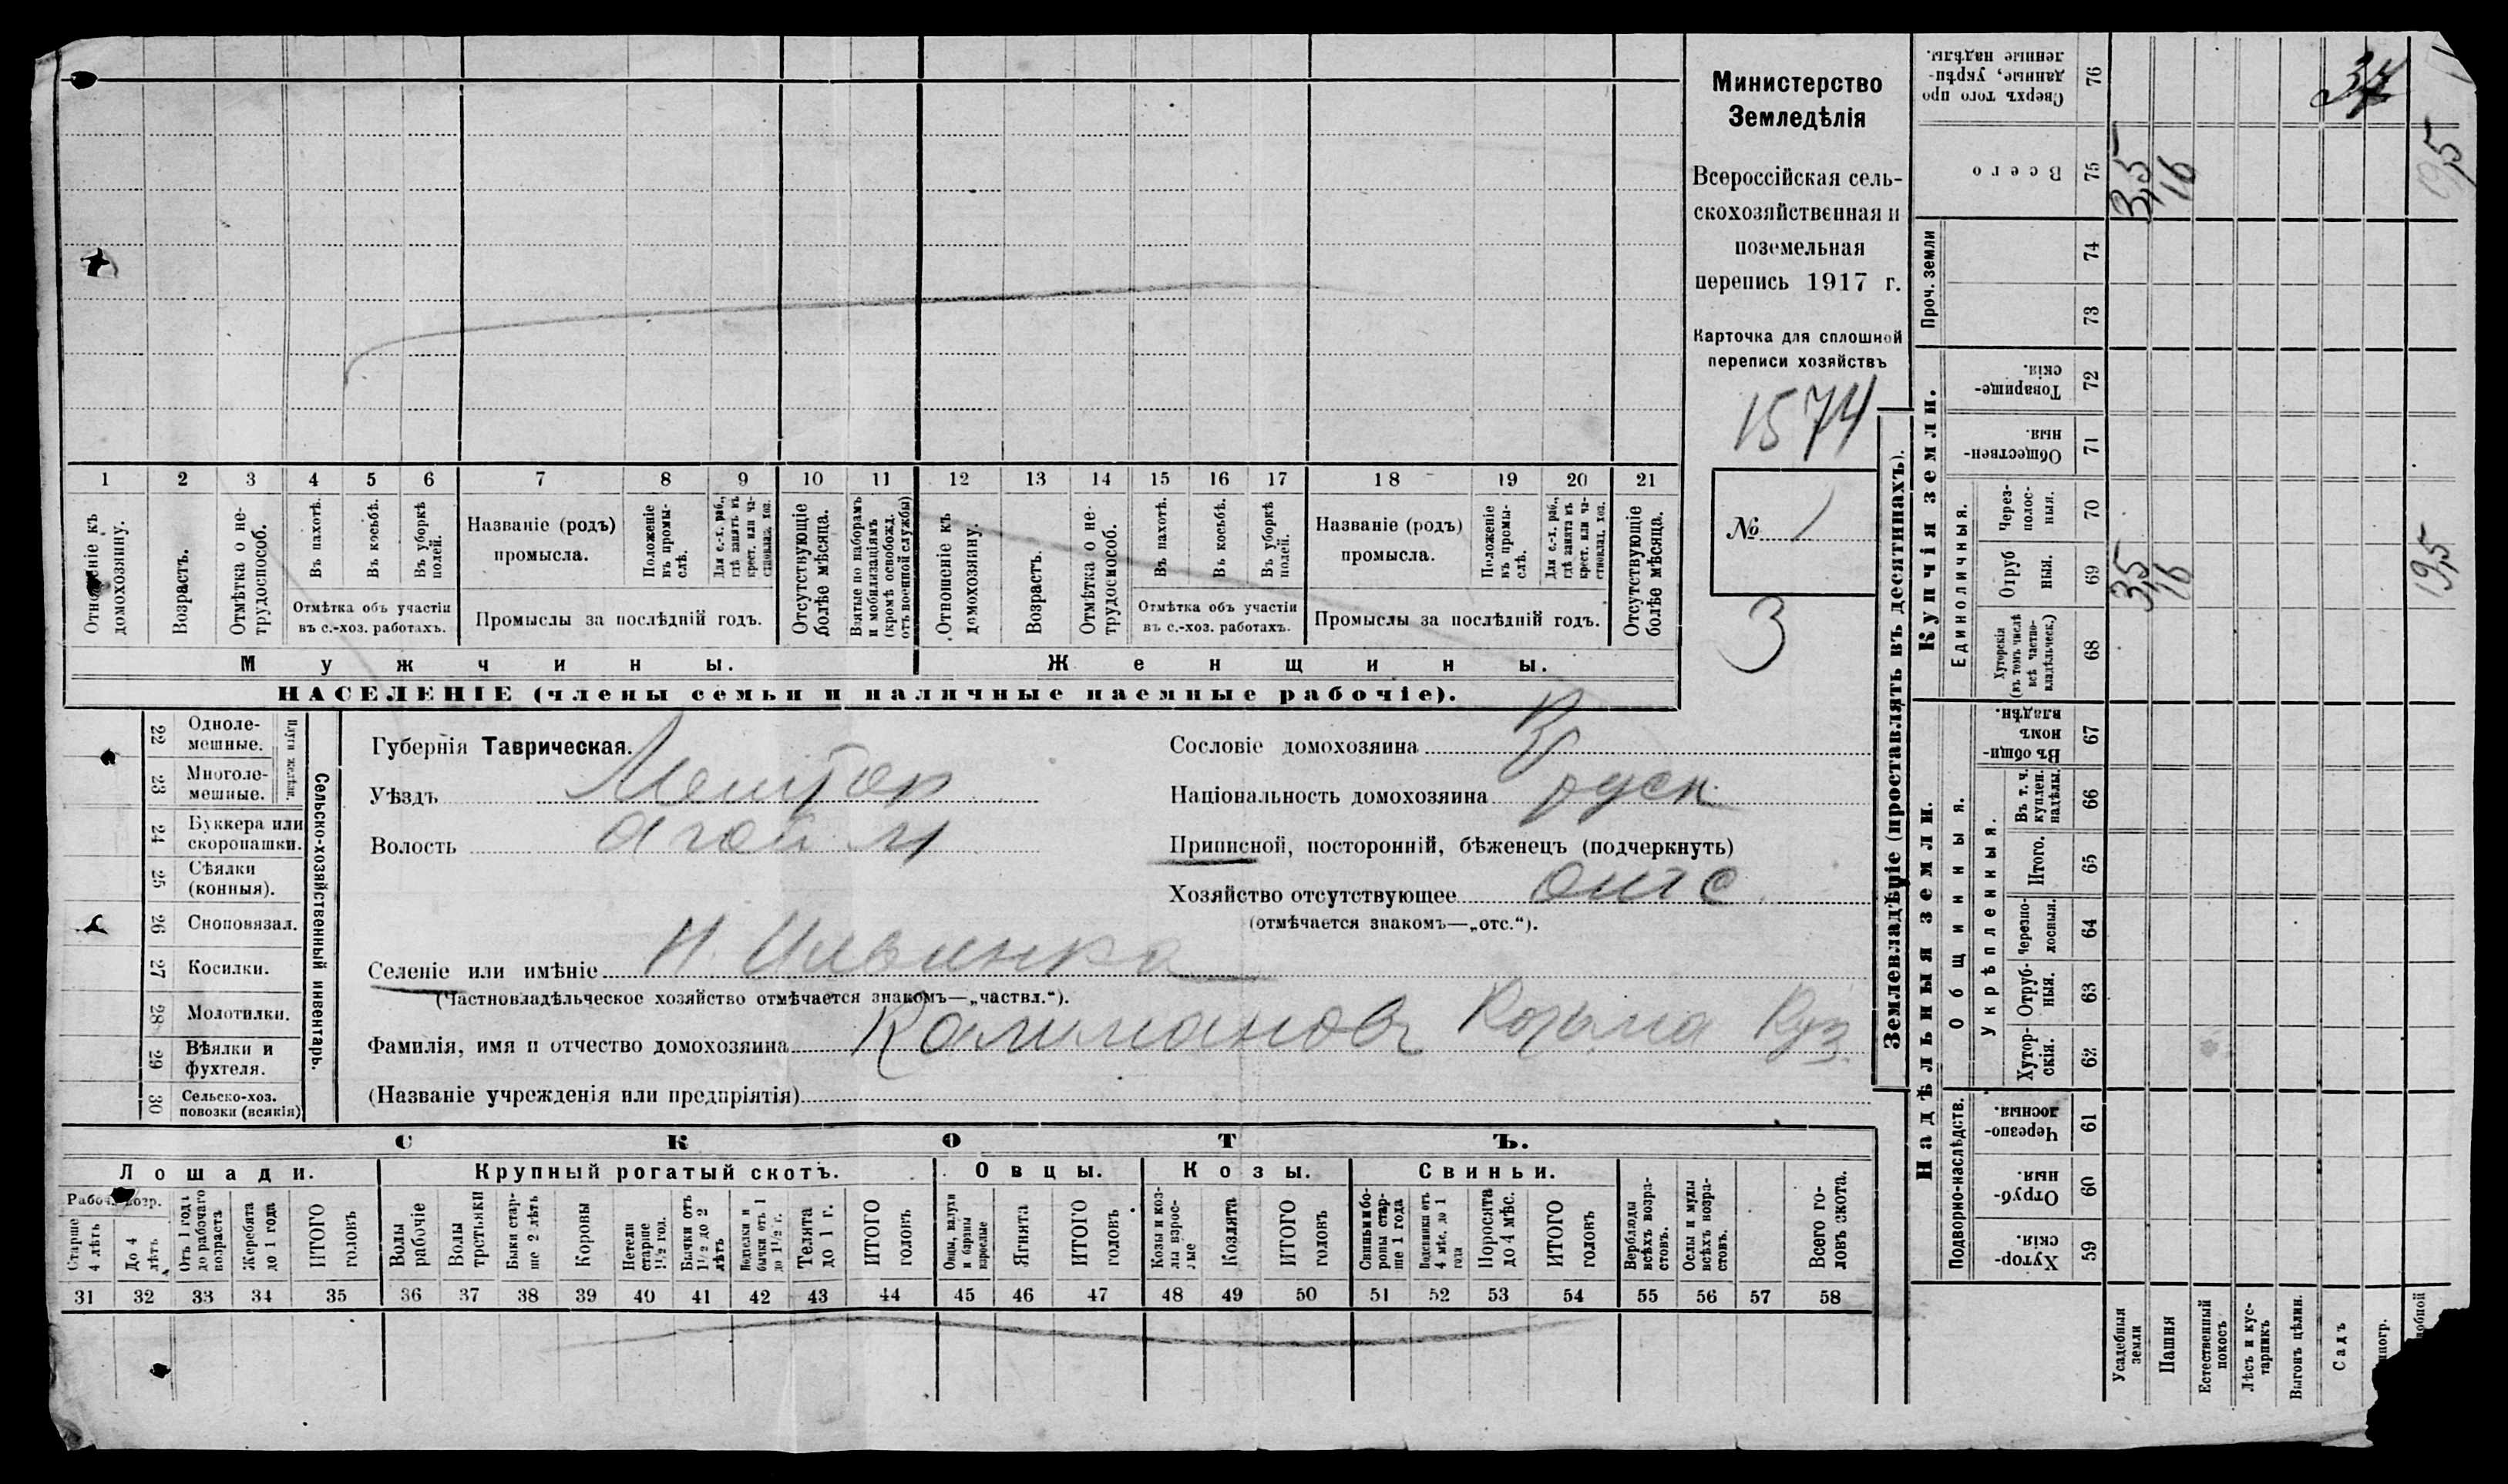 Министерство
Земледѣлія
Всероссійская сель-
скохозяйственная и
поземельная
перепись 1917 г.
Карточка для сплошной
переписи хозяйствъ
1574
№ 1
3
1 2 3 4 5 6 7 8 9 10 11 12 13 14 15 16 17 18 19 20 21
Отношеніе къ домохозяину.
Возрастъ.
Отмѣтка о не-трудоспособ.
Въ пахотѣ.
Въ косьбѣ.
Въ уборкѣ полей.
Отмѣтка объ участіи
въ с.-хоз. работахъ.
Названіе (родъ)
промысла.
Положеніе въ промы-слѣ.
Для с.-х. раб., гдѣ занятъ въ крест. или ча-стновлад. хоз.
Промыслы за послѣдній годъ.
Отсутствующіе болѣе мѣсяца.
Взятые по наборамъ и мобилизаціямъ (кромѣ освобожд. отъ военной службы)
Отношеніе къ домохозяину.
Возрастъ.
Отмѣтка о не-трудоспособ.
Въ пахотѣ.
Въ косьбѣ.
Въ уборкѣ полей.
Отмѣтка объ участіи
въ с.-хоз. работахъ.
Названіе (родъ)
промысла.
Положеніе въ промы-слѣ.
Для с.-х. раб., гдѣ занята въ крест. или ча-стновлад. хоз.
Промыслы за послѣдній годъ.
Отсутствующіе болѣе мѣсяца.
Мужчины.
Женщины.
НАСЕЛЕНІЕ (члены семьи и наличные наемные рабочіе).
22 Одноле-мешные.
23 Многоле-мешные.
плуги желѣзн.
24 Буккера или скоропашки.
25 Сѣялки (конныя).
26 Сноповязал.
27 Косилки.
28 Молотилки.
29 Вѣялки и фухтеля.
30 Сельско-хоз. повозки (всякія)
Сельско-хозяйственный инвентарь.
Губернія Таврическая.
Уѣздъ Мелитоп
Волость
Сословіе домохозяина
Національность домохозяина русск
Приписной, посторонній, бѣженецъ (подчеркнуть)
Хозяйство отсутствующее отс
(отмѣчается знакомъ—„отс.“).
Селеніе или имѣніе Н. Ильинка
(Частновладѣльческое хозяйство отмѣчается знакомъ—„частвл.“).
Фамилія, имя и отчество домохозяина Калимановъ Козьма Куз.
(Названіе учрежденія или предпріятія)
СКОТЪ.
Лошади.
Крупный рогатый скотъ.
Овцы.
Козы.
Свиньи.
Рабоч. возр.
Старше 4 лѣтъ
До 4 лѣтъ
Отъ 1 года до рабочаго возраста
Жеребята до 1 года
ИТОГО головъ
Волы рабочіе
Волы третьяки
Быки стар-ше 2 лѣтъ
Коровы
Нетели старше 1½ год.
Бычки отъ 1½ до 2 лѣтъ
Подтелки и бычки отъ 1 до 1½ г.
Телята до 1 г.
ИТОГО головъ
Овцы, валухи и бараны взрослые
Ягнята
ИТОГО головъ
Козы и коз-лы взрос-лые
Козлята
ИТОГО головъ
Свиньи и бо-ровы стар-ше 1 года
Подсвинки отъ 4 мѣс. до 1 года
Поросята до 4 мѣс.
ИТОГО головъ
Верблюды всѣхъ возра-стовъ.
Ослы и мулы всѣхъ возра-стовъ.
Всего го-ловъ скота.
31 32 33 34 35 36 37 38 39 40 41 42 43 44 45 46 47 48 49 50 51 52 53 54 55 56 57 58
Землевладѣніе (проставлять въ десятинахъ).
Купчія земли.
Надѣльныя земли.
Сверхъ того про-данные, укрѣп-ленные надѣлы. 76
Всего 75 3,5 16 19,5
Проч. земли 74 73
Товарище-скія. 72
Обществен-ныя. 71
Единоличныя.
Через-полос-ныя. 70
Отруб-ныя. 69 3,5 16 19,5
Хуторскія (въ томъ числѣ всѣ частно-владѣльческ.) 68
Въ общи-номъ владѣн. 67
Общинныя.
Укрѣпленныя.
Въ т. ч. куплен. надѣлы. 66
Итого. 65
Черезпо-лосныя. 64
Отруб-ныя. 63
Хутор-скія. 62
Подворно-наслѣдств.
Черезпо-лосныя. 61
Отруб-ныя. 60
Хутор-скія. 59
Усадебныя земли
Пашня
Естественный покосъ
Лѣсъ и кус-тарникъ
Выгонъ цѣлин.
Садъ